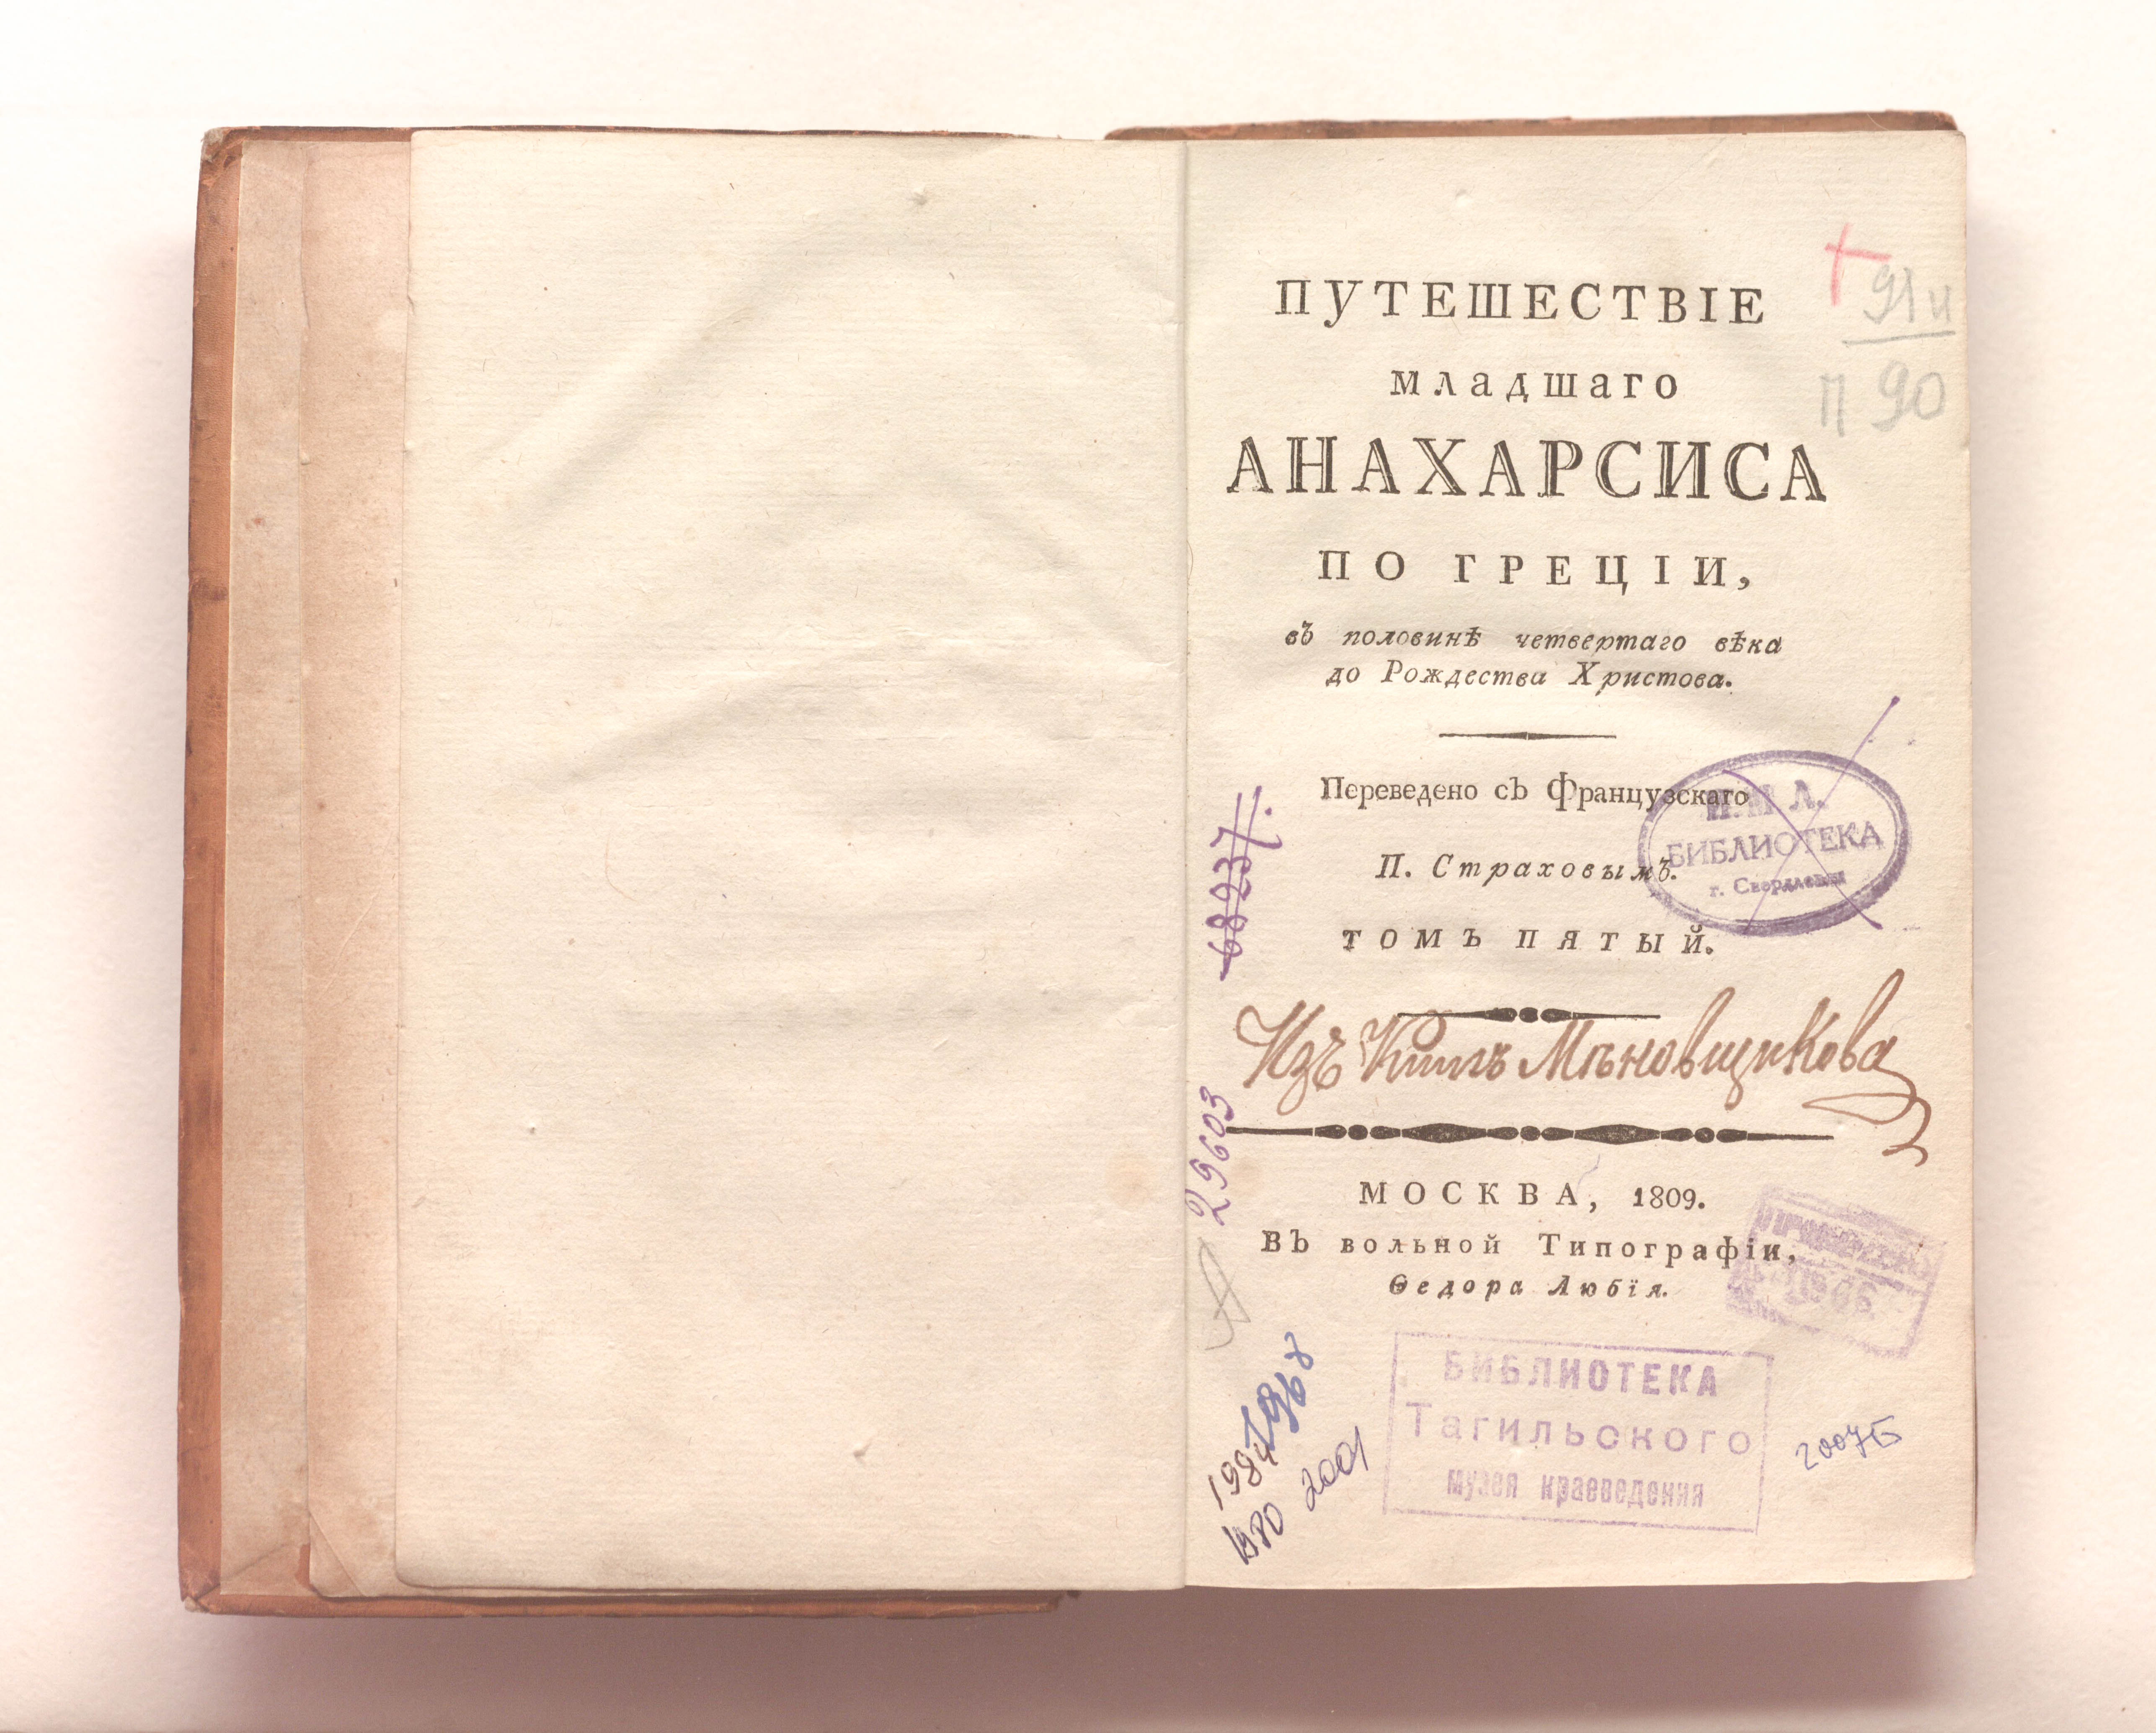 ПУТЕШЕСТВІЕ
младшаго
АНАХАРСИСА
ПО ГРЕЦІИ,
въ половинѣ четвертаго вѣка
до Рождества Христова.
Переведено съ Французскаго
П. Страховымъ.
ТОМЪ ПЯТЫЙ.
Изъ Книгъ Мѣновщикова
МОСКВА, 1809.
Въ вольной Типографіи,
Ѳедора Любія.
+
91и
П 90
БИБЛИОТЕКА
г. Свердловск
68237.
29603
БИБЛИОТЕКА
Тагильского
музея краеведения
2007Б
1968
1984
2001